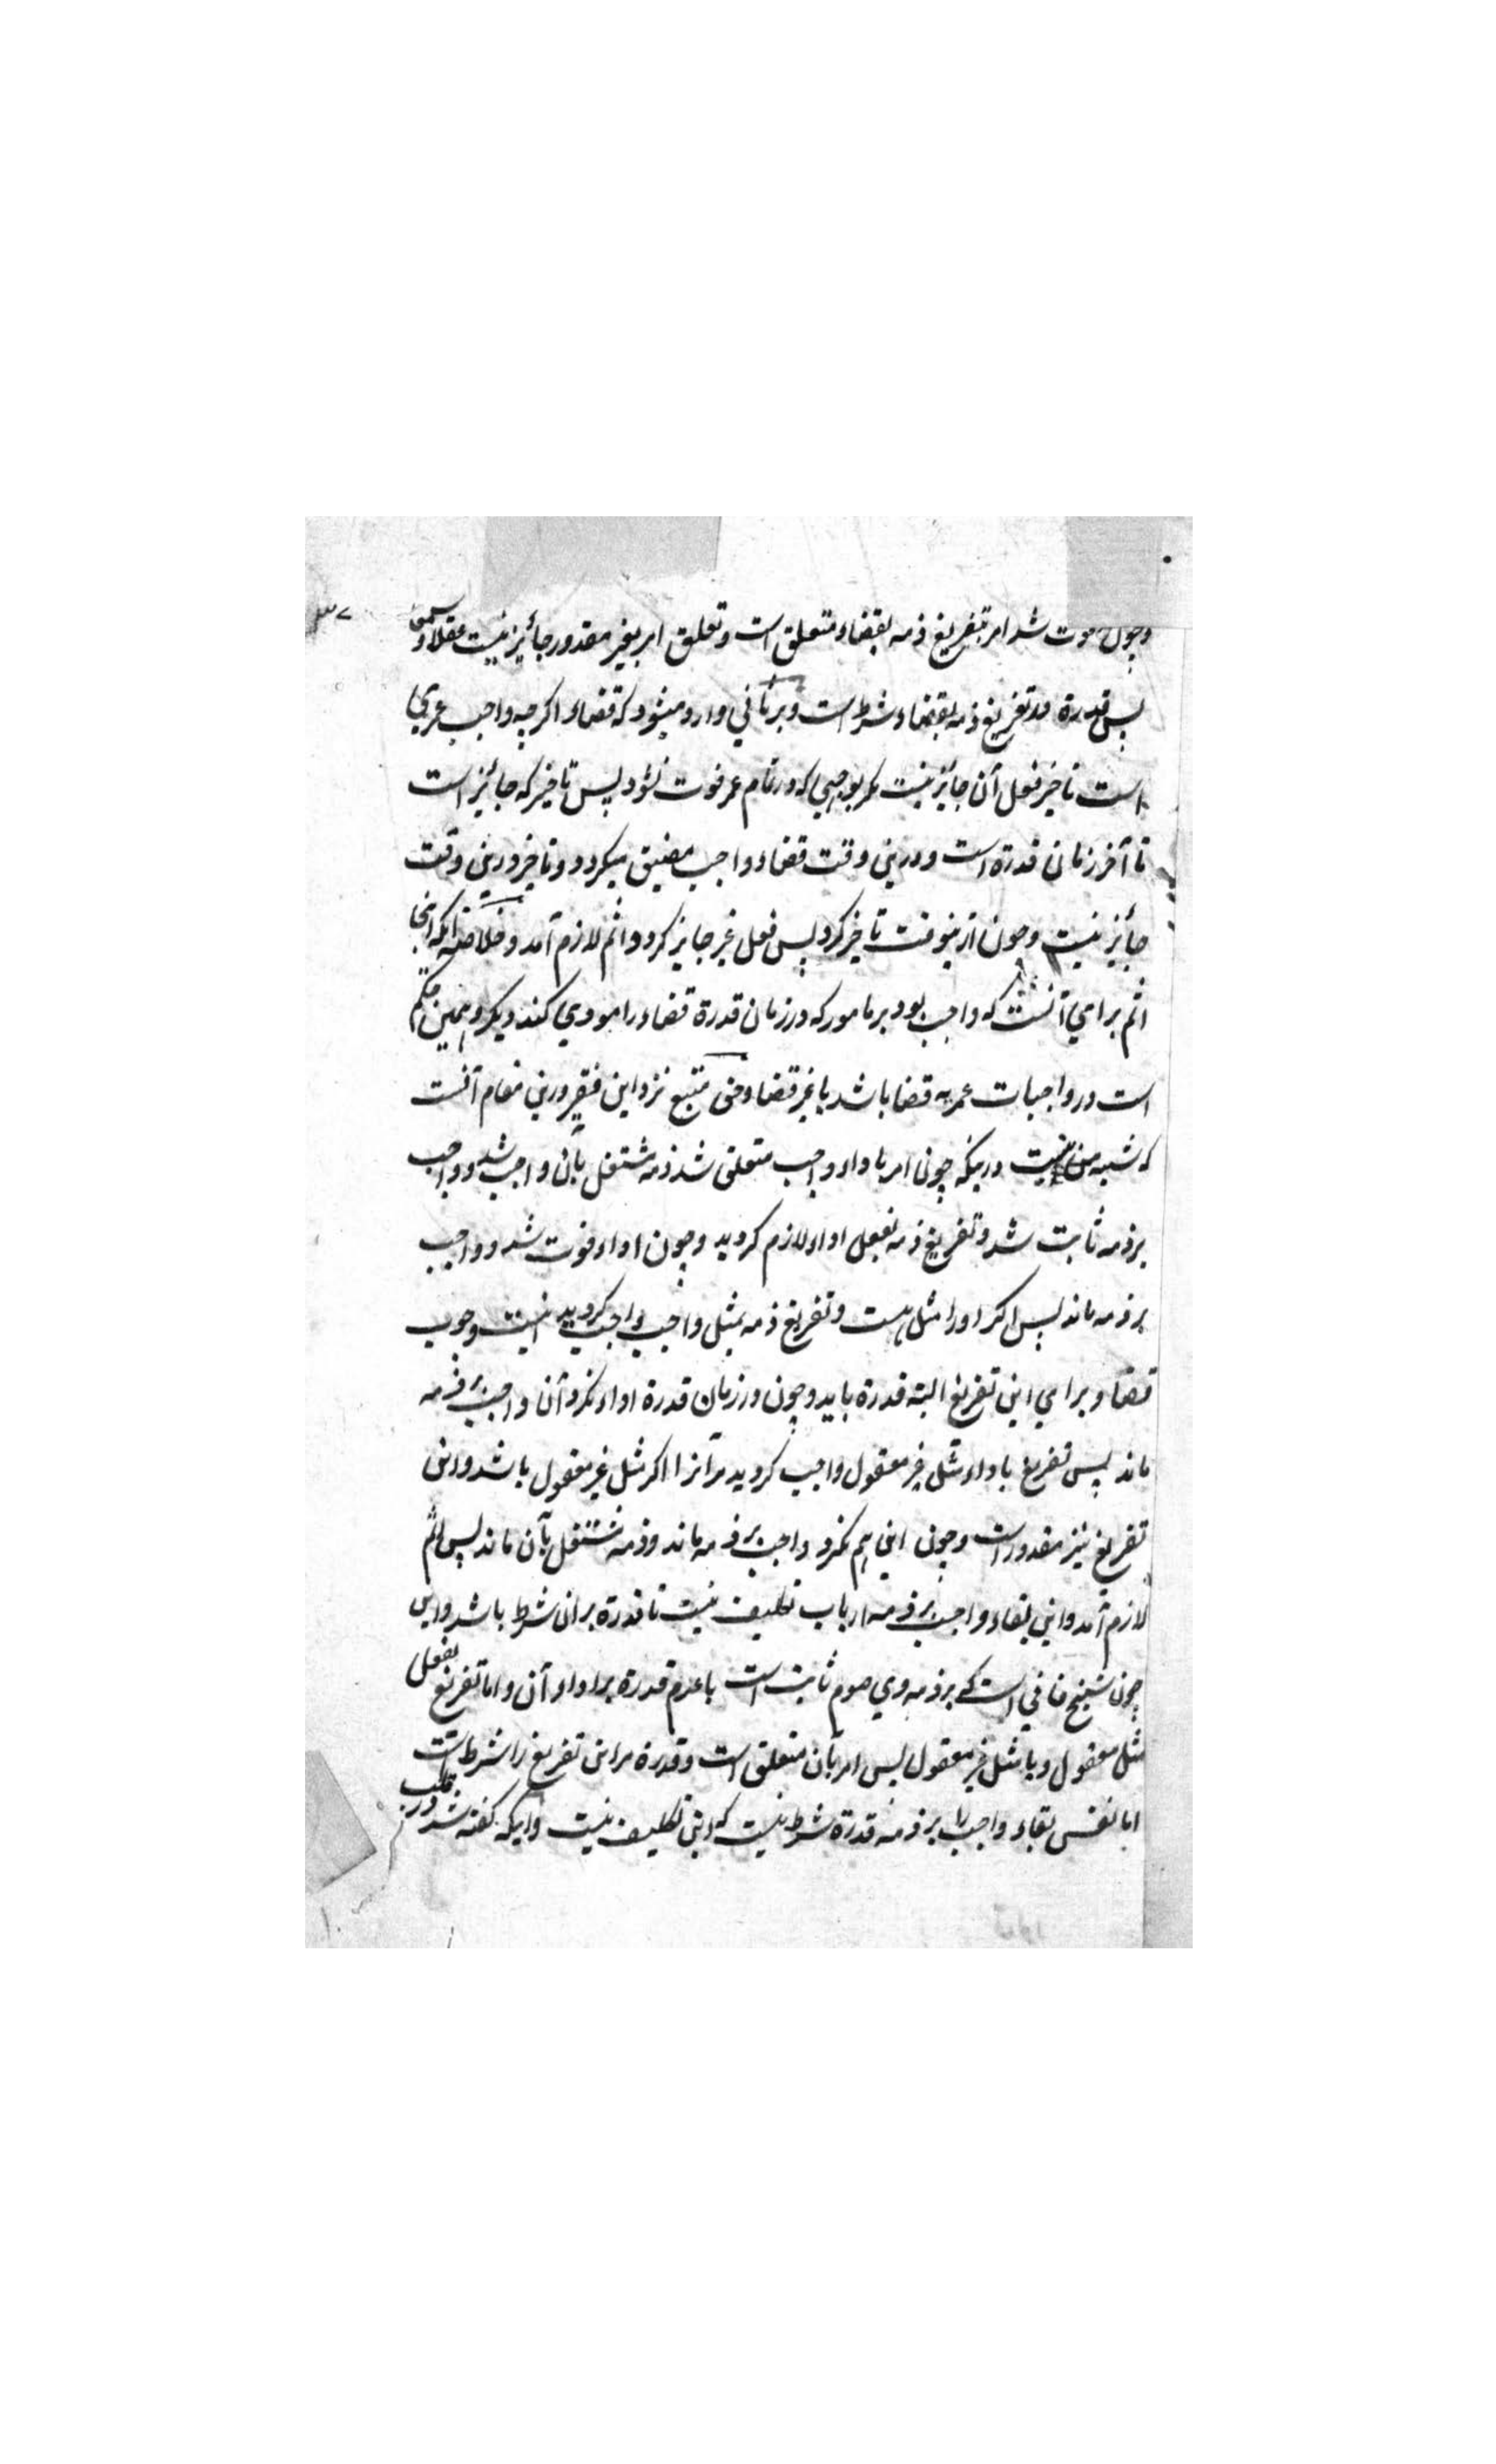 وچون موت شد امر بتفریغ ذمه بقضاء متعلق است و تعلق امر بغیر مقدور جائز نیست عقلا و سمعا
پس قدرة مر تفریغ ذمه بقضاء شرط است و برثاني وارد میشود که قضاء اکرچه واجب عمري
است تاخیر فعل آن جائز نیست مکر بوجهي که در تمام عمر فوت نشود پس تاخیر که جائز است
تا آخر زمان قدرة است و درین وقت قضاء واجب مضیق میکردد و تاخیر درین وقت
جائز نیست و چون ازینوقت تاخیر کرد پس فعل غیر جایز کرد و اثم لازم آمد و خلاصه آنکه اینجا
اثم براي آنست که واجب بود بر مامور که در زمان قدرة قضاء را مودي کند دیکر و همین حکم
است در واجبات عمریه قضا باشد یا غیر قضا و حق متبع نزد این فقیر درین مقام آنست
که شبه من نیست درینکه چون امر باداء واجب متعلق شد ذمه مشتغل بآن واجب شد و واجب
بر ذمه ثابت شد و تفریغ ذمه بفعل اداء لازم کردید و چون اداء فوت شد و واجب
بر ذمه ماند پس اکر اورا مثل هست و تفریغ ذمه بمثل واجب واجب کردید اینست وجوب
قضا و براي این تفریغ البته قدرة باید و چون در زمان قدرة اداء نکرد آن واجب بر ذمه
ماند پس تفریغ باداء مثل غیر معقول واجب کردید مر آنرا اکر مثل غیر معقول باشد و این
تفریغ نیز مقدور است و چون این هم نکرد واجب بر ذمه ماند و ذمه مشتغل بآن ماند پس اثم
لازم آمد و این بقاء واجب بر ذمه از باب تکلیف نیست تا قدرة بران شرط باشد و این
چون شیخ فاني است که بر ذمه وي صوم ثابت است با عدم قدرة بر اداء آن و اما تفریغ بفعل
مثل معقول و یا مثل غیر معقول پس امر بآن متعلق است و قدرة مر این تفریغ را شرط است
اما نفس بقاء واجب را بر ذمه قدرة شرط نیست که این تکلیف نیست و اینکه کفته شد در